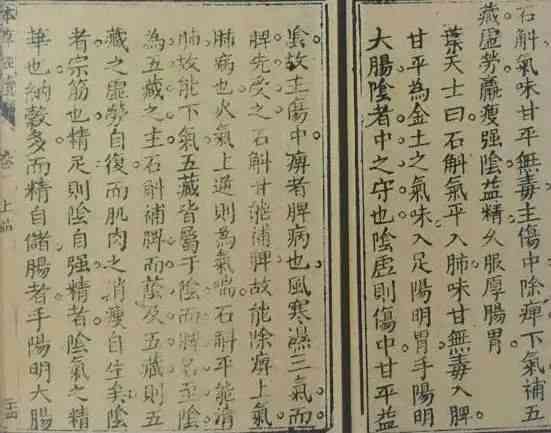 石斛氣味甘平無毒主傷中除痺下氣補五
藏虛勞羸瘦强陰益精久服厚腸胃
葉天士曰石斛氣平入肺味甘無毒入脾
甘平為金土之氣味入足陽明胃手陽明
大腸陰者中之守也陰虛則傷中甘平益
陰故主傷中痺者脾病也風寒濕三氣而
脾先受之石斛甘能補脾故能除痺上氣
肺病也火氣上逆則為氣喘石斛平能清
肺故能下氣五藏皆屬于陰而脾名至陰
為五藏之主石斛補脾而蔭及五藏則五
藏之虛勞自復而肌肉之消瘦自生矣陰
者宗筋也精足則陰自强精者陰氣之精
華也納穀多而精自儲腸者手陽明大腸
卷
上品